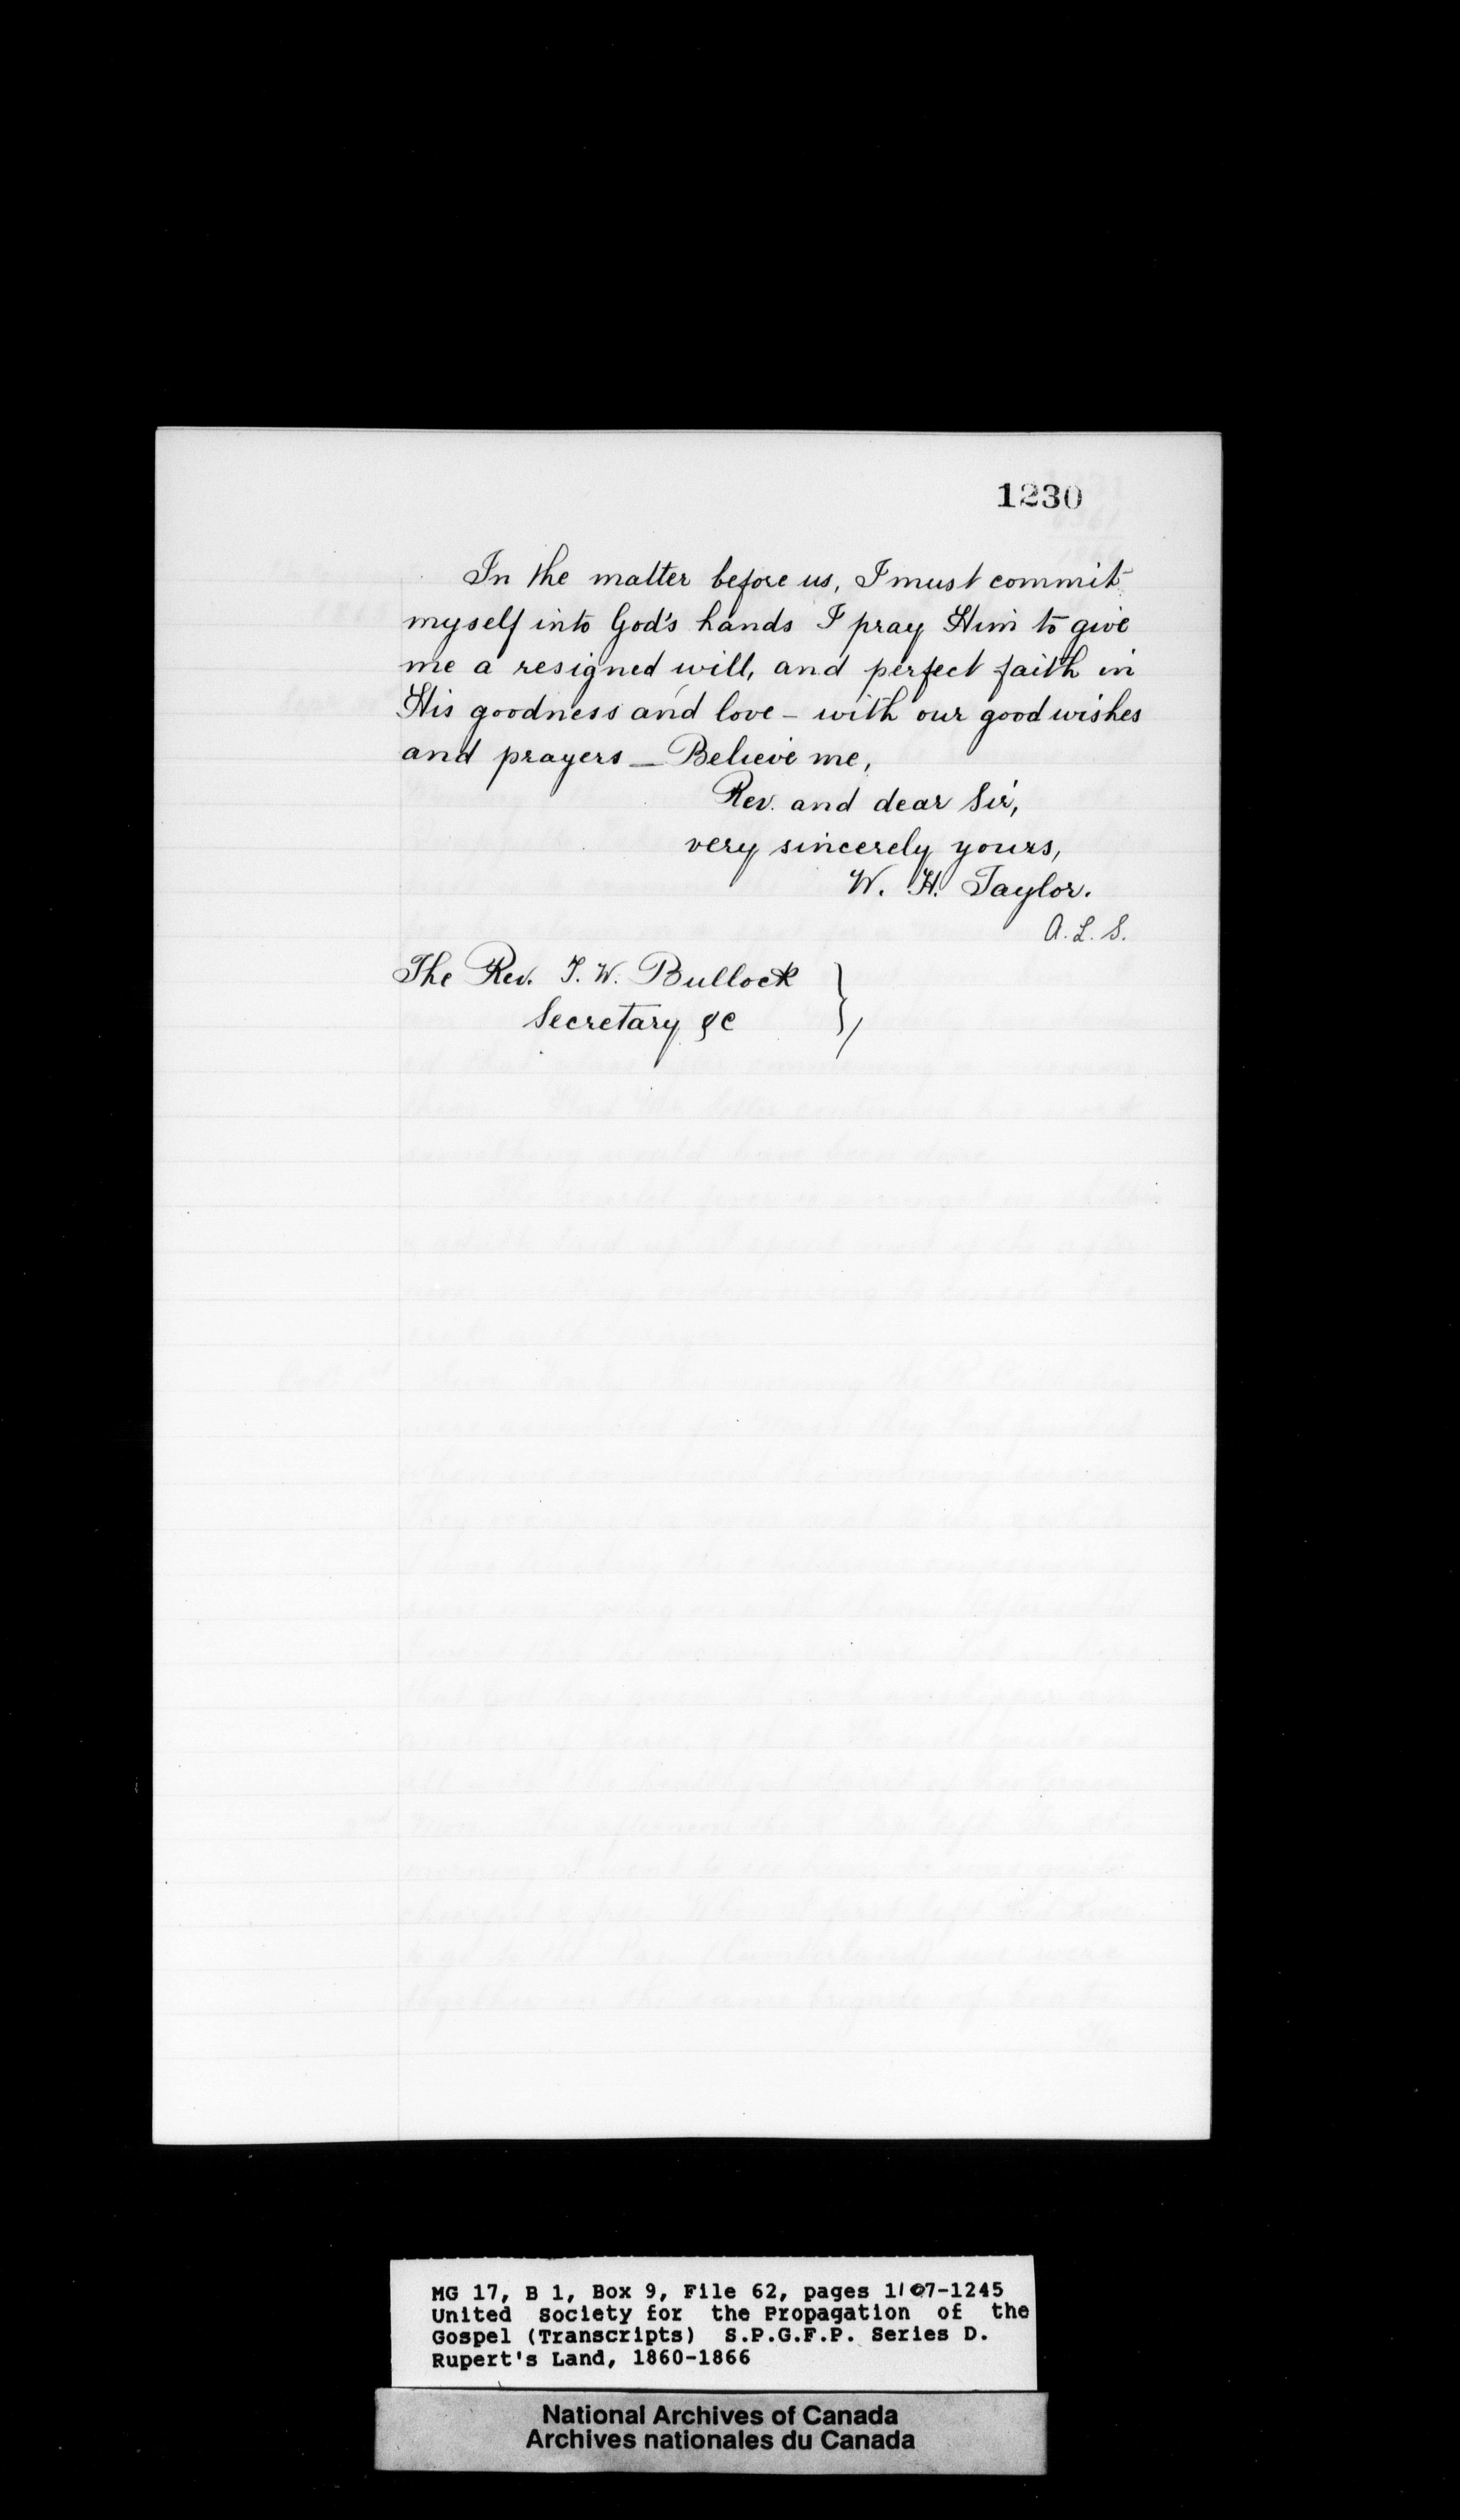 1230
In the matter before us, I must commit
myself into God's hands I pray Him to give
me a resigned will, and perfect faith in
His goodness and love – with our good wishes
and prayers — Believe me,
Rev. and dear Sir,
very sincerely yours,
W. H. Taylor.
A. L. S.
The Rev. T. W. Bullock }
Secretary &c
MG 17, B 1, Box 9, File 62, pages 1107-1245
United Society for the Propagation of the
Gospel (Transcripts) S.P.G.F.P. Series D.
Rupert's Land, 1860-1866
National Archives of Canada
Archives nationales du Canada